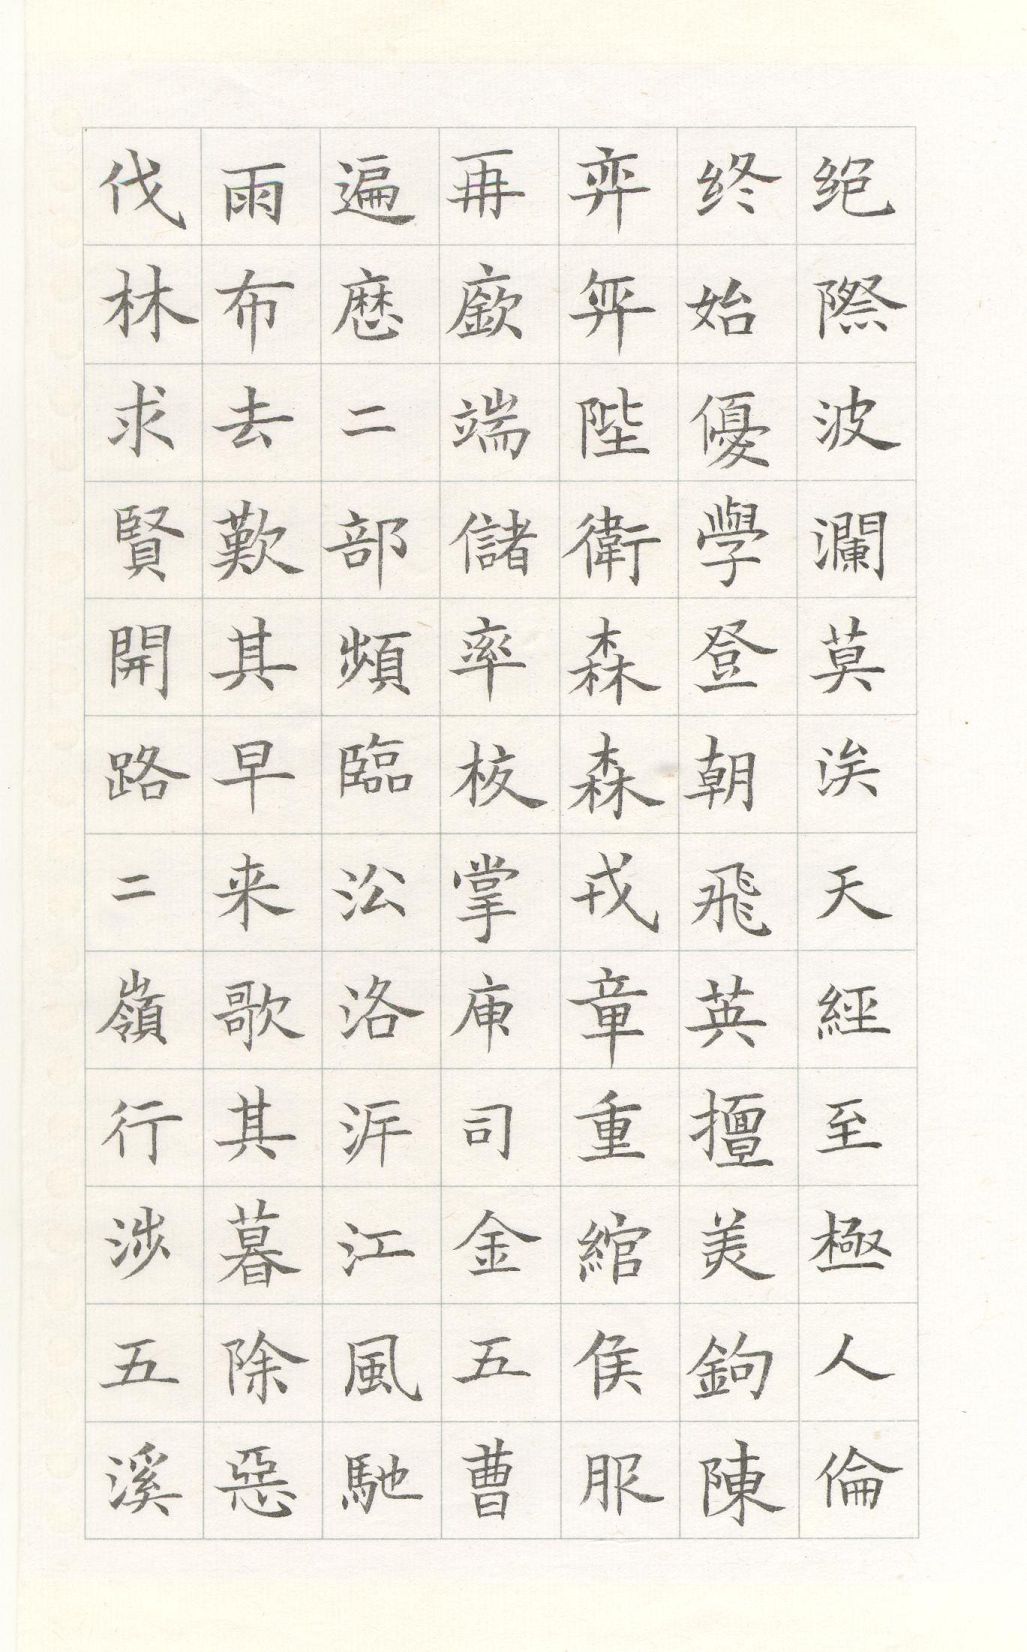 绝際波瀾莫涘天經至極人倫
终始優學登朝飛英擅美鉤陳
弈弈陛衛森森戎章重綰侯服
再廞端儲率校掌庫司金五曹
遍歷二部頻臨㳂洛汧江風馳
雨布去歎其早来歌其暮除惡
伐林求賢開路二嶺行涉五溪